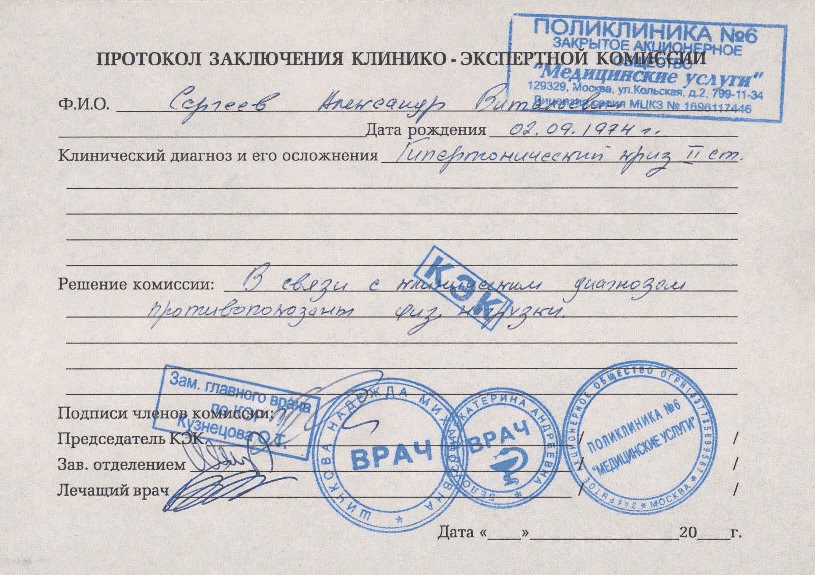 ПОЛИКЛИНИКА №6
ЗАКРЫТОЕ АКЦИОНЕРНОЕ
ОБЩЕСТВО
"Медицинские услуги"
129329, Москва, ул.Кольская, д.2, 799-11-34
Лицензия серия МЦКЗ № 1696117446
ПРОТОКОЛ ЗАКЛЮЧЕНИЯ КЛИНИКО - ЭКСПЕРТНОЙ КОМИССИИ
Ф.И.О. Сергеев Александр Витальевич
Дата рождения 02.09.1974 г.
Клинический диагноз и его осложнения Гипертонический криз II ст.
Решение комиссии: В связи с клиническим диагнозом
противопоказаны физ. нагрузки.
КЭК
Зам. главного врача
по КЭР
Кузнецова О.Г.
Подписи членов комиссии:
Председатель КЭК
Зав. отделением
Лечащий врач
ШИНКОВА НАДЕЖДА
ВРАЧ
ЕКАТЕРИНА АНДРЕЕВНА
ВРАЧ
ПОЛИКЛИНИКА №6
"МЕДИЦИНСКИЕ УСЛУГИ"
* МОСКВА *
/ /
/ /
/ /
Дата «____»____________20____г.